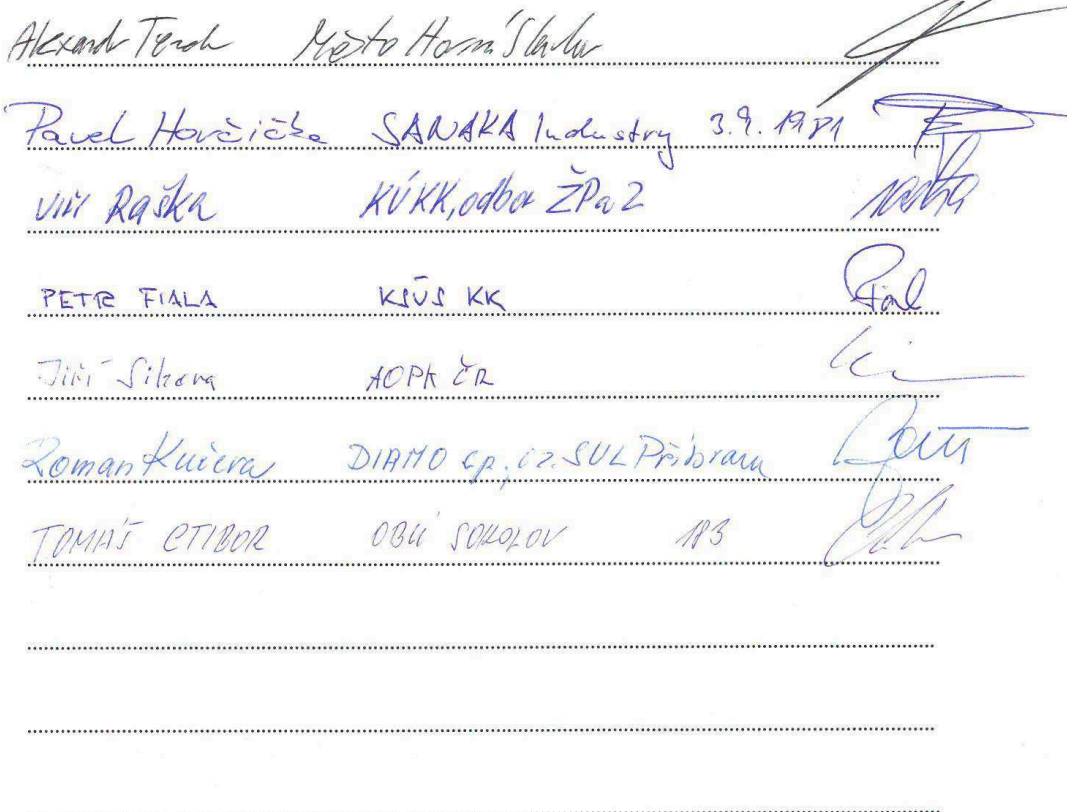 Alexandr Terek Město Horní Slavkov
Pavel Horčička SANAKA Industry 3.9.1981
Jiří Raška KÚKK, odbor ŽPaZ
PETR FIALA KSÚS KK
Jiří Sikora AOPK ČR
Roman Kučera DIAMO s.p., o.z. SUL Příbram
TOMÁŠ CTIBOR OBÚ SOKOLOV 183